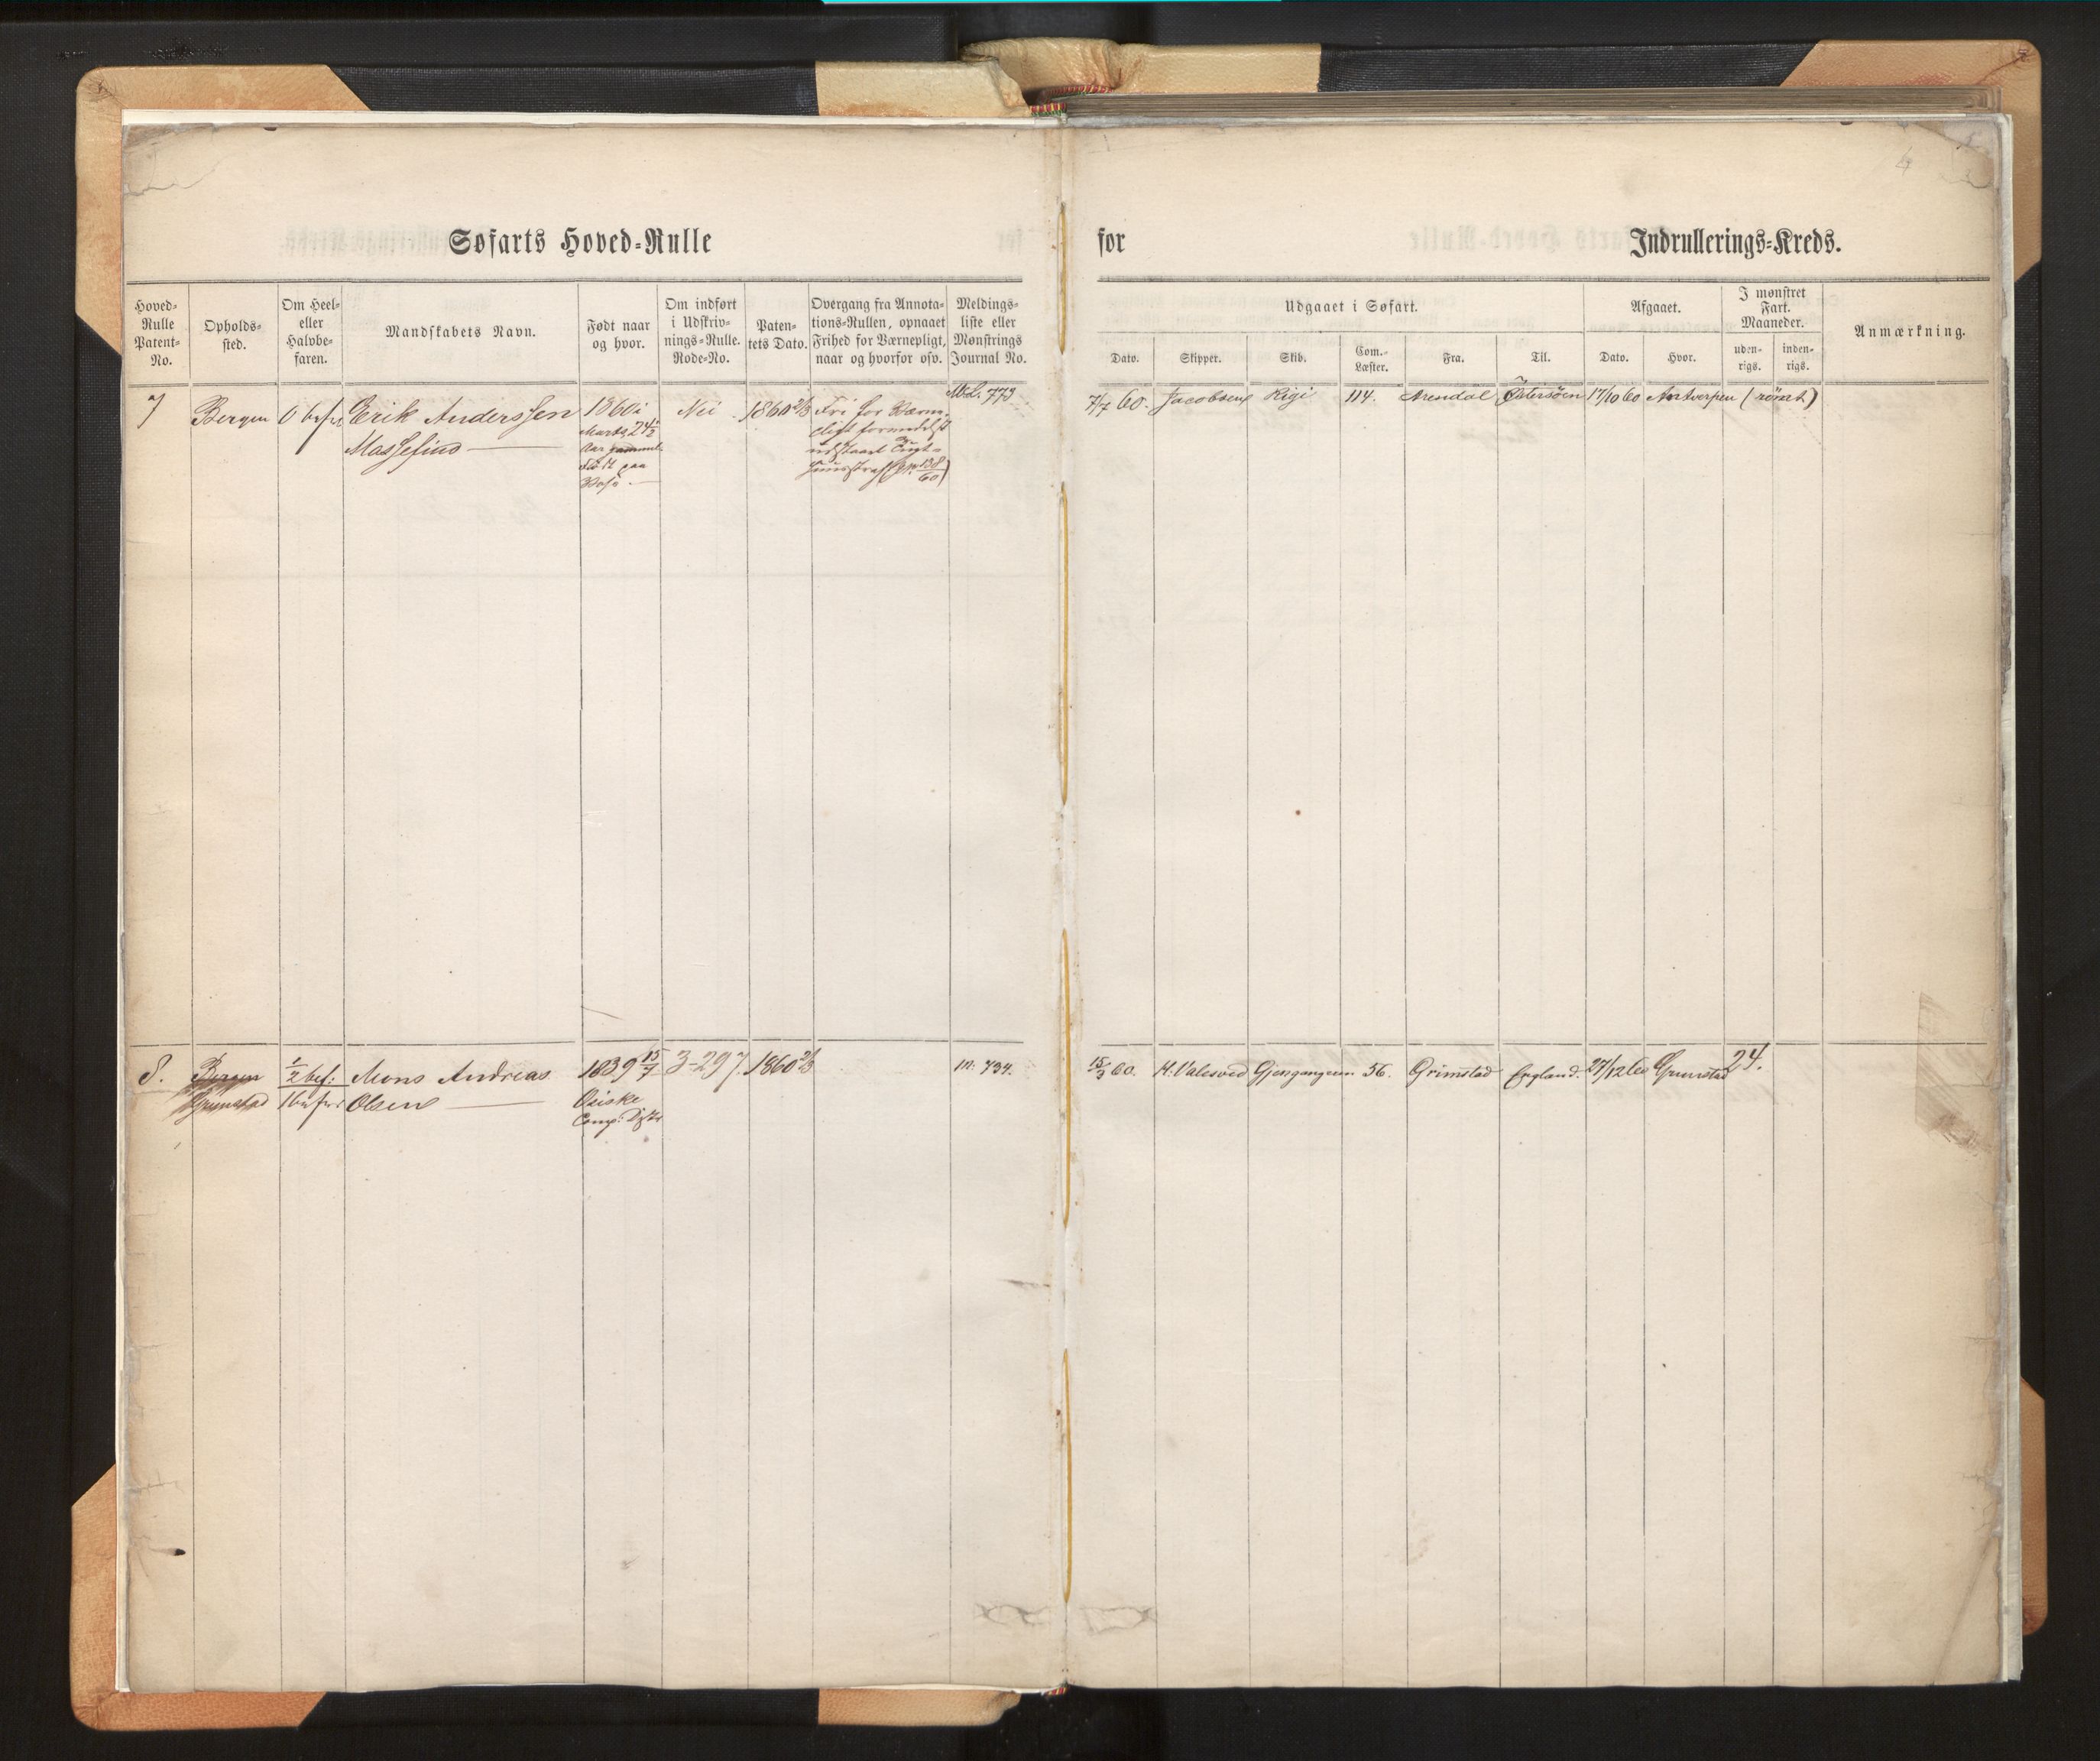 Søfarts Hoved-Rulle
for
Indrullerings-Kreds.
Hoved-
Rulle
Patent-
No.
Opholds-
sted.
Om Heel-
eller
Halvbe-
faren.
Mandskabets Navn.
Født naar
og hvor.
Om indført
i Udskriv-
nings-Rulle.
Rode-No.
Paten-
tets Dato.
Overgang fra Annota-
tions-Rullen, opnaaet
Frihed for Værnepligt,
naar og hvorfor osv.
Meldings-
liste eller
Mønstrings
Journal No.
Udgaaet i Søfart.
Dato.
Skipper.
Skib.
Com.-
Læster.
Fra.
Til.
Afgaaet.
Dato.
Hvor.
I mønstret
Fart.
Maaneder.
uden-
rigs.
inden-
rigs.
Anmærkning.
4
7
Bergen
Erik Anderssen
Massesund
1860 i
Marts 24½
Aar gammel
Født paa
Nei
1860 2/3
Fri for Værne-
pligt formedelst
udstaaet Tugt-
huusstraf
773
7/7 60.
Jacobsen
Rigi
114.
Arendal
Østersöen
17/10 60
Antwerpen
(römt)
8.
Bergen
Grimstad
½ bef:
Mons Andreas
Olsen
1839 15/7
Comp. Distr
3-297
1860 2/3
M. 734.
15/3 60.
Gjengangeren
56.
Grimstad
England.
27/12 60
Grimstad
24.